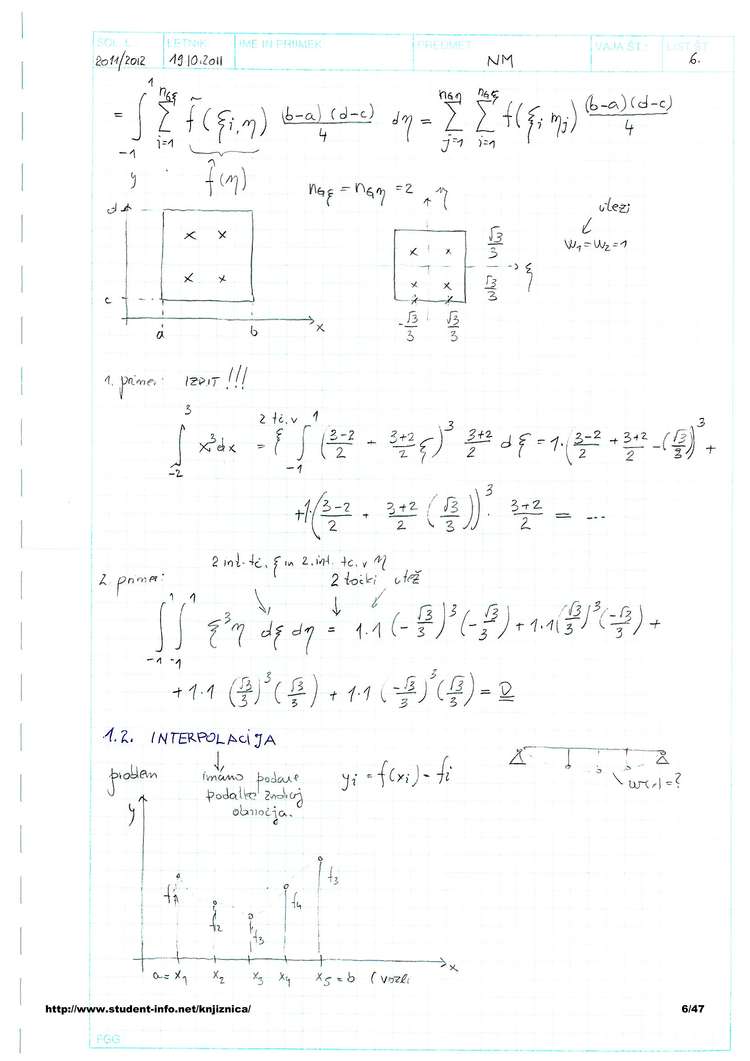 ŠOL. L. LETNIK IME IN PRIIMEK PREDMET VAJA ŠT.: LIST ŠT.
2011/2012 19 10.2011 NM 6.
= ∫_{-1}^{1} Σ_{i=1}^{n_{Gξ}} f̃(ξi, η) (b-a)(d-c)/4 dη = Σ_{j=1}^{n_{Gη}} Σ_{i=1}^{n_{Gξ}} f(ξi ηj) (b-a)(d-c)/4
f̂(η)
n_{Gξ} = n_{Gη} = 2
y d c a b x
η √3/3 √3/3 → ξ
-√3/3 √3/3
utezi
w1 = w2 = 1
1. primer: IZPIT!!!
2 tč. v
∫_{-2}^{3} x³dx = ξ ∫_{-1}^{1} (3-2/2 + 3+2/2 ξ)³ 3+2/2 dξ = 1·(3-2/2 + 3+2/2 -(√3/3))³ +
+1·(3-2/2 + 3+2/2 (√3/3))³ · 3+2/2 = ...
2 int. tč. ξ in 2. int. tč. v η
2. primer: 2 točki utež
∫_{-1}^{1} ∫_{-1}^{1} ξ³η dξ dη = 1.1 (-√3/3)³ (-√3/3) + 1.1(√3/3)³ (-√3/3) +
+ 1.1 (√3/3)³ (√3/3) + 1.1 (-√3/3)³ (√3/3) = 0
1.2. INTERPOLACIJA
problem imamo podane yi = f(xi) - fi
podatke znotraj w(x)=?
območja.
y
f1 f2 f3 f4 f3
a = x1 x2 x3 x4 x5 = b (vozli
x
http://www.student-info.net/knjiznica/ 6/47
FGG